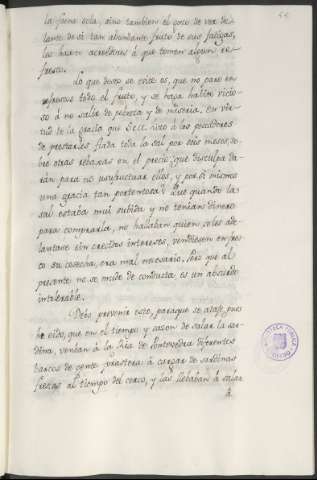 la faena sola, sino tambien el gozo de ver de-
lante de sí tan abundante fruto de sus fatigas,
les hacen acrehedores á que tomen algun re-
fresco.
Lo que deseo se evite es, que no pare en
refrescos todo el fruto, y se haga habito vicio-
so á no salir de pobreza y de miseria. En vir-
tud de la gracia que hizo á los pescadores
de prestarles fiada toda la sal por seis meses, so-
bre otras rebaxas en el precio, que disculpa da-
rán para no usufructuar ellos, y por sí mismos
una gracia tan portentosa? Que quando la
sal estaba mui subida y no tenian dinero
para comprarla, no hallaban quien se les ade-
lantase sin crecidos intereses, vendiesen en fres-
co su cosecha, era mal necesario, pero que al
presente no se mude de conducta es un absurdo
intolerable.
Debo prevenir esto, paraque se ataje, pues
he oido, que en el tiempo y sazon de salar la sar-
dina, venian á la Ria de Pontevedra diferentes
barcos de gente forastera á cargar de sardinas
frescas al tiempo del cerco, y las llebaban á salar
á